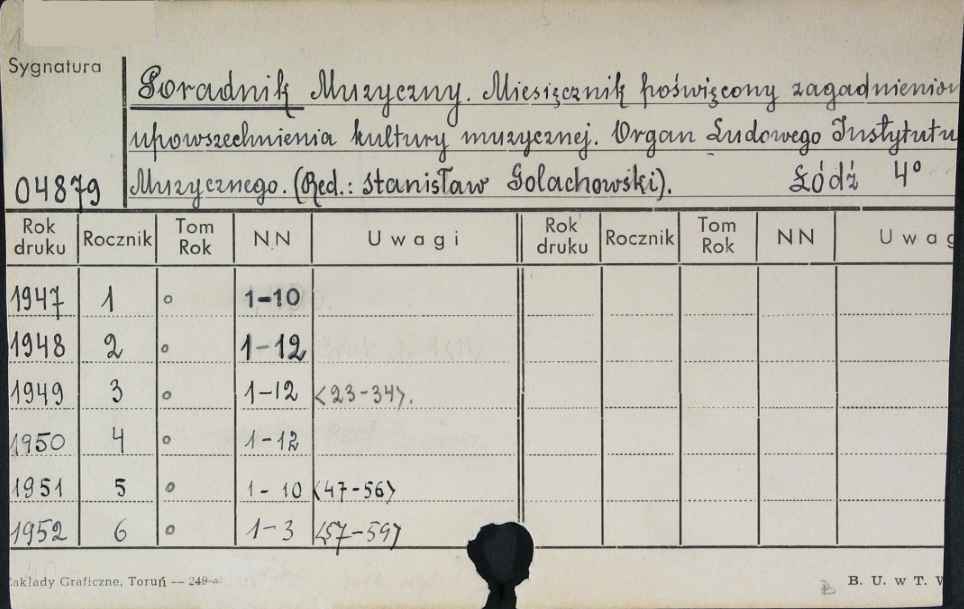 Sygnatura
Poradnik Muzyczny. Miesięcznik poświęcony
upowszechnienia kultury muzycznej. Organ Ludowego Instytutu
04879 Muzycznego. (Red.: Stanisław Golachowski). Łódź 4°
Rok druku Rocznik Tom Rok NN Uwagi Rok druku Rocznik Tom Rok NN
1947 1 ° 1-10
1948 2 ° 1-12
1949 3 ° 1-12 <23-34>.
1950 4 ° 1-12
1951 5 ° 1-10 <47-56>
1952 6 ° 1-3 <57-59>
Graficzne, Toruń — B. U. w T.